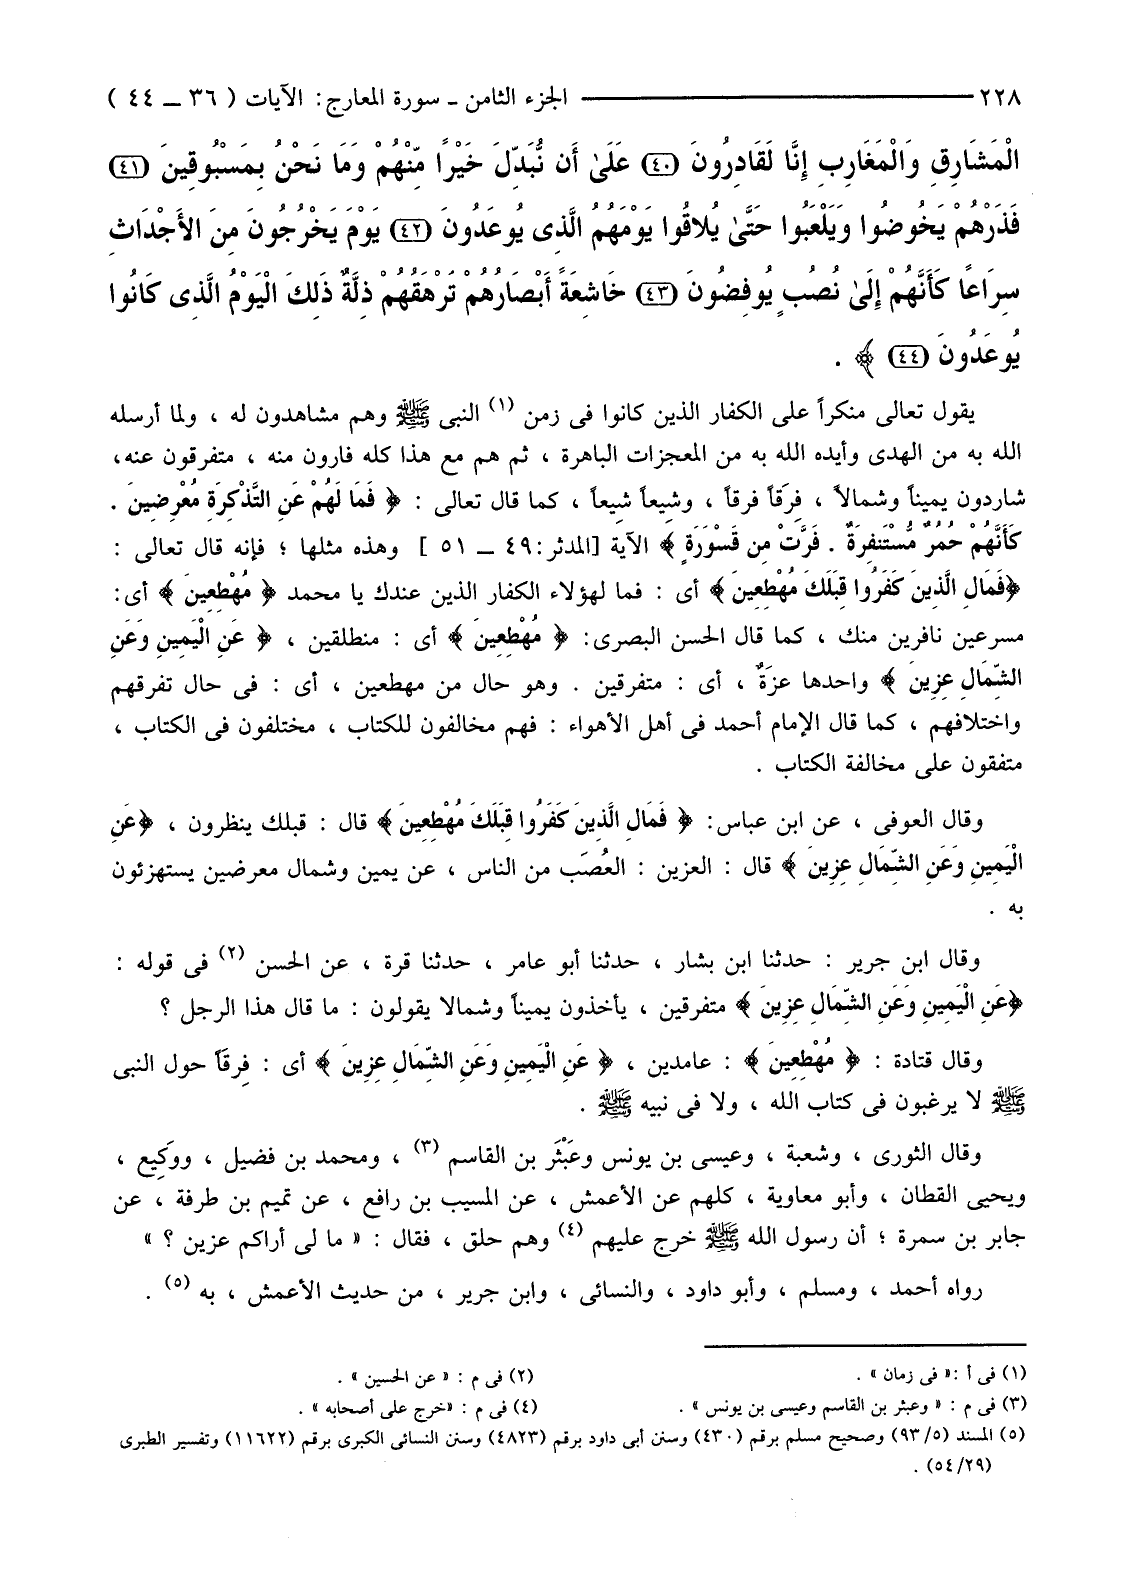 ٢٢٨ ـــــــــــــــــــــ الجزء الثامن - سورة المعارج: الآيات ( ٣٦ ــ ٤٤ )
الْمَشَارِقِ وَالْمَغَارِبِ إِنَّا لَقَادِرُونَ (٤٠) عَلَىٰ أَن نُّبَدِّلَ خَيْرًا مِّنْهُمْ وَمَا نَحْنُ بِمَسْبُوقِينَ (٤١)
فَذَرْهُمْ يَخُوضُوا وَيَلْعَبُوا حَتَّىٰ يُلاقُوا يَوْمَهُمُ الَّذِى يُوعَدُونَ (٤٢) يَوْمَ يَخْرُجُونَ مِنَ الأَجْدَاثِ
سِرَاعًا كَأَنَّهُمْ إِلَىٰ نُصُبٍ يُوفِضُونَ (٤٣) خَاشِعَةً أَبْصَارُهُمْ تَرْهَقُهُمْ ذِلَّةٌ ذَلِكَ الْيَوْمُ الَّذِى كَانُوا
يُوعَدُونَ (٤٤) ﴾ .
يقول تعالى منكراً على الكفار الذين كانوا فى زمن (١) النبى ﷺ وهم مشاهدون له ، ولما أرسله
الله به من الهدى وأيده الله به من المعجزات الباهرة ، ثم هم مع هذا كله فارون منه ، متفرقون عنه،
شاردون يميناً وشمالاً ، فِرَقاً فرقاً ، وشيعاً شيعاً ، كما قال تعالى : ﴿ فَمَا لَهُمْ عَنِ التَّذْكِرَةِ مُعْرِضِينَ .
كَأَنَّهُمْ حُمُرٌ مُّسْتَنفِرَةٌ . فَرَّتْ مِن قَسْوَرَةٍ ﴾ الآية [المدثر:٤٩ ــ ٥١ ] وهذه مثلها ؛ فإنه قال تعالى :
﴿فَمَالِ الَّذِينَ كَفَرُوا قِبَلَكَ مُهْطِعِينَ ﴾ أى : فما لهؤلاء الكفار الذين عندك يا محمد ﴿ مُهْطِعِينَ ﴾ أى:
مسرعين نافرين منك ، كما قال الحسن البصرى: ﴿ مُهْطِعِينَ ﴾ أى : منطلقين ، ﴿ عَنِ الْيَمِينِ وَعَنِ
الشِّمَالِ عِزِينَ ﴾ واحدها عزَةٌ ، أى : متفرقين . وهو حال من مهطعين ، أى : فى حال تفرقهم
واختلافهم ، كما قال الإمام أحمد فى أهل الأهواء : فهم مخالفون للكتاب ، مختلفون فى الكتاب ،
متفقون على مخالفة الكتاب .
وقال العوفى ، عن ابن عباس: ﴿ فَمَالِ الَّذِينَ كَفَرُوا قِبَلَكَ مُهْطِعِينَ ﴾ قال : قبلك ينظرون ، ﴿عَنِ
الْيَمِينِ وَعَنِ الشِّمَالِ عِزِينَ ﴾ قال : العزين : العُصَب من الناس ، عن يمين وشمال معرضين يستهزئون
به .
وقال ابن جرير : حدثنا ابن بشار ، حدثنا أبو عامر ، حدثنا قرة ، عن الحسن (٢) فى قوله :
﴿عَنِ الْيَمِينِ وَعَنِ الشِّمَالِ عِزِينَ ﴾ متفرقين ، يأخذون يميناً وشمالا يقولون : ما قال هذا الرجل ؟
وقال قتادة : ﴿ مُهْطِعِينَ ﴾ : عامدين ، ﴿ عَنِ الْيَمِينِ وَعَنِ الشِّمَالِ عِزِينَ ﴾ أى : فِرقَاً حول النبى
ﷺ لا يرغبون فى كتاب الله ، ولا فى نبيه ﷺ .
وقال الثورى ، وشعبة ، وعيسى بن يونس وعَبْثَر بن القاسم (٣) ، ومحمد بن فضيل ، ووكَيِع ،
ويحيى القطان ، وأبو معاوية ، كلهم عن الأعمش ، عن المسيب بن رافع ، عن تميم بن طرفة ، عن
جابر بن سمرة ؛ أن رسول الله ﷺ خرج عليهم (٤) وهم حلق ، فقال : « ما لى أراكم عزين ؟ »
رواه أحمد ، ومسلم ، وأبو داود ، والنسائى ، وابن جرير ، من حديث الأعمش ، به (٥) .
(١) فى أ :« فى زمان » .
(٢) فى م : « عن الحسين » .
(٣) فى م : « وعبثر بن القاسم وعيسى بن يونس » .
(٤) فى م : «خرج على أصحابه » .
(٥) المسند (٥/ ٩٣) وصحيح مسلم برقم (٤٣٠) وسنن أبى داود برقم (٤٨٢٣) وسنن النسائى الكبرى برقم (١١٦٢٢) وتفسير الطبرى
(٢٩/ ٥٤) .